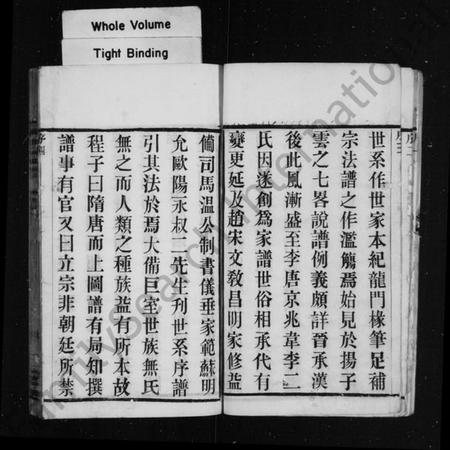 Whole Volume
Tight Binding
世系作世家本紀龍門椽筆足補
宗法譜之作濫觴焉始見於揚子
雲之七畧說譜例義頗詳晉承漢
後此風漸盛至李唐京兆韋李二
氏因遂創爲家譜世俗相承代有
變更延及趙宋文敎昌明家修益
備司馬温公制書儀垂家範蘇明
允歐陽永叔二先生刋世系序譜
引其法於焉大備巨室世族無氏
無之而人類之種族益有所本故
程子曰隋唐而上圖譜有局知撰
譜事有官又曰立宗非朝廷所禁
序四
familysearch international